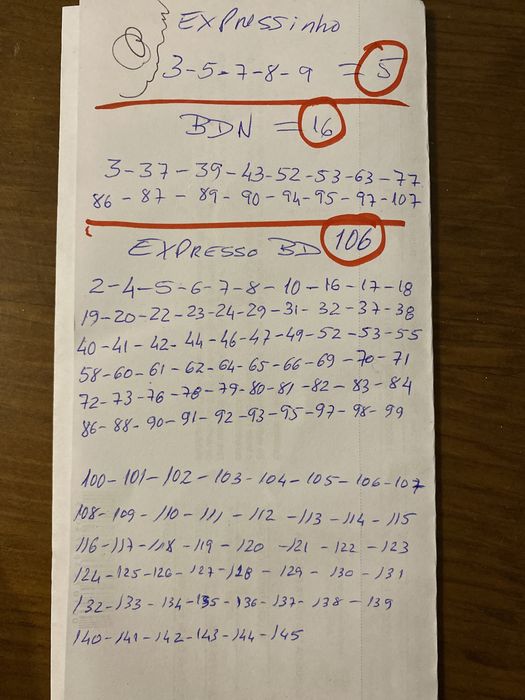 EXPRESSINHO
3-5-7-8-9 = 5
BDN = 16
3-37-39-43-52-53-63-77
86-87-89-90-94-95-97-107
EXPRESSO BD 106
2-4-5-6-7-8-10-16-17-18
19-20-22-23-24-29-31-32-37-38
40-41-42-44-46-47-49-52-53-55
58-60-61-62-64-65-66-69-70-71
72-73-76-78-79-80-81-82-83-84
86-88-90-91-92-93-95-97-98-99
100-101-102-103-104-105-106-107
108-109-110-111-112-113-114-115
116-117-118-119-120-121-122-123
124-125-126-127-128-129-130-131
132-133-134-135-136-137-138-139
140-141-142-143-144-145